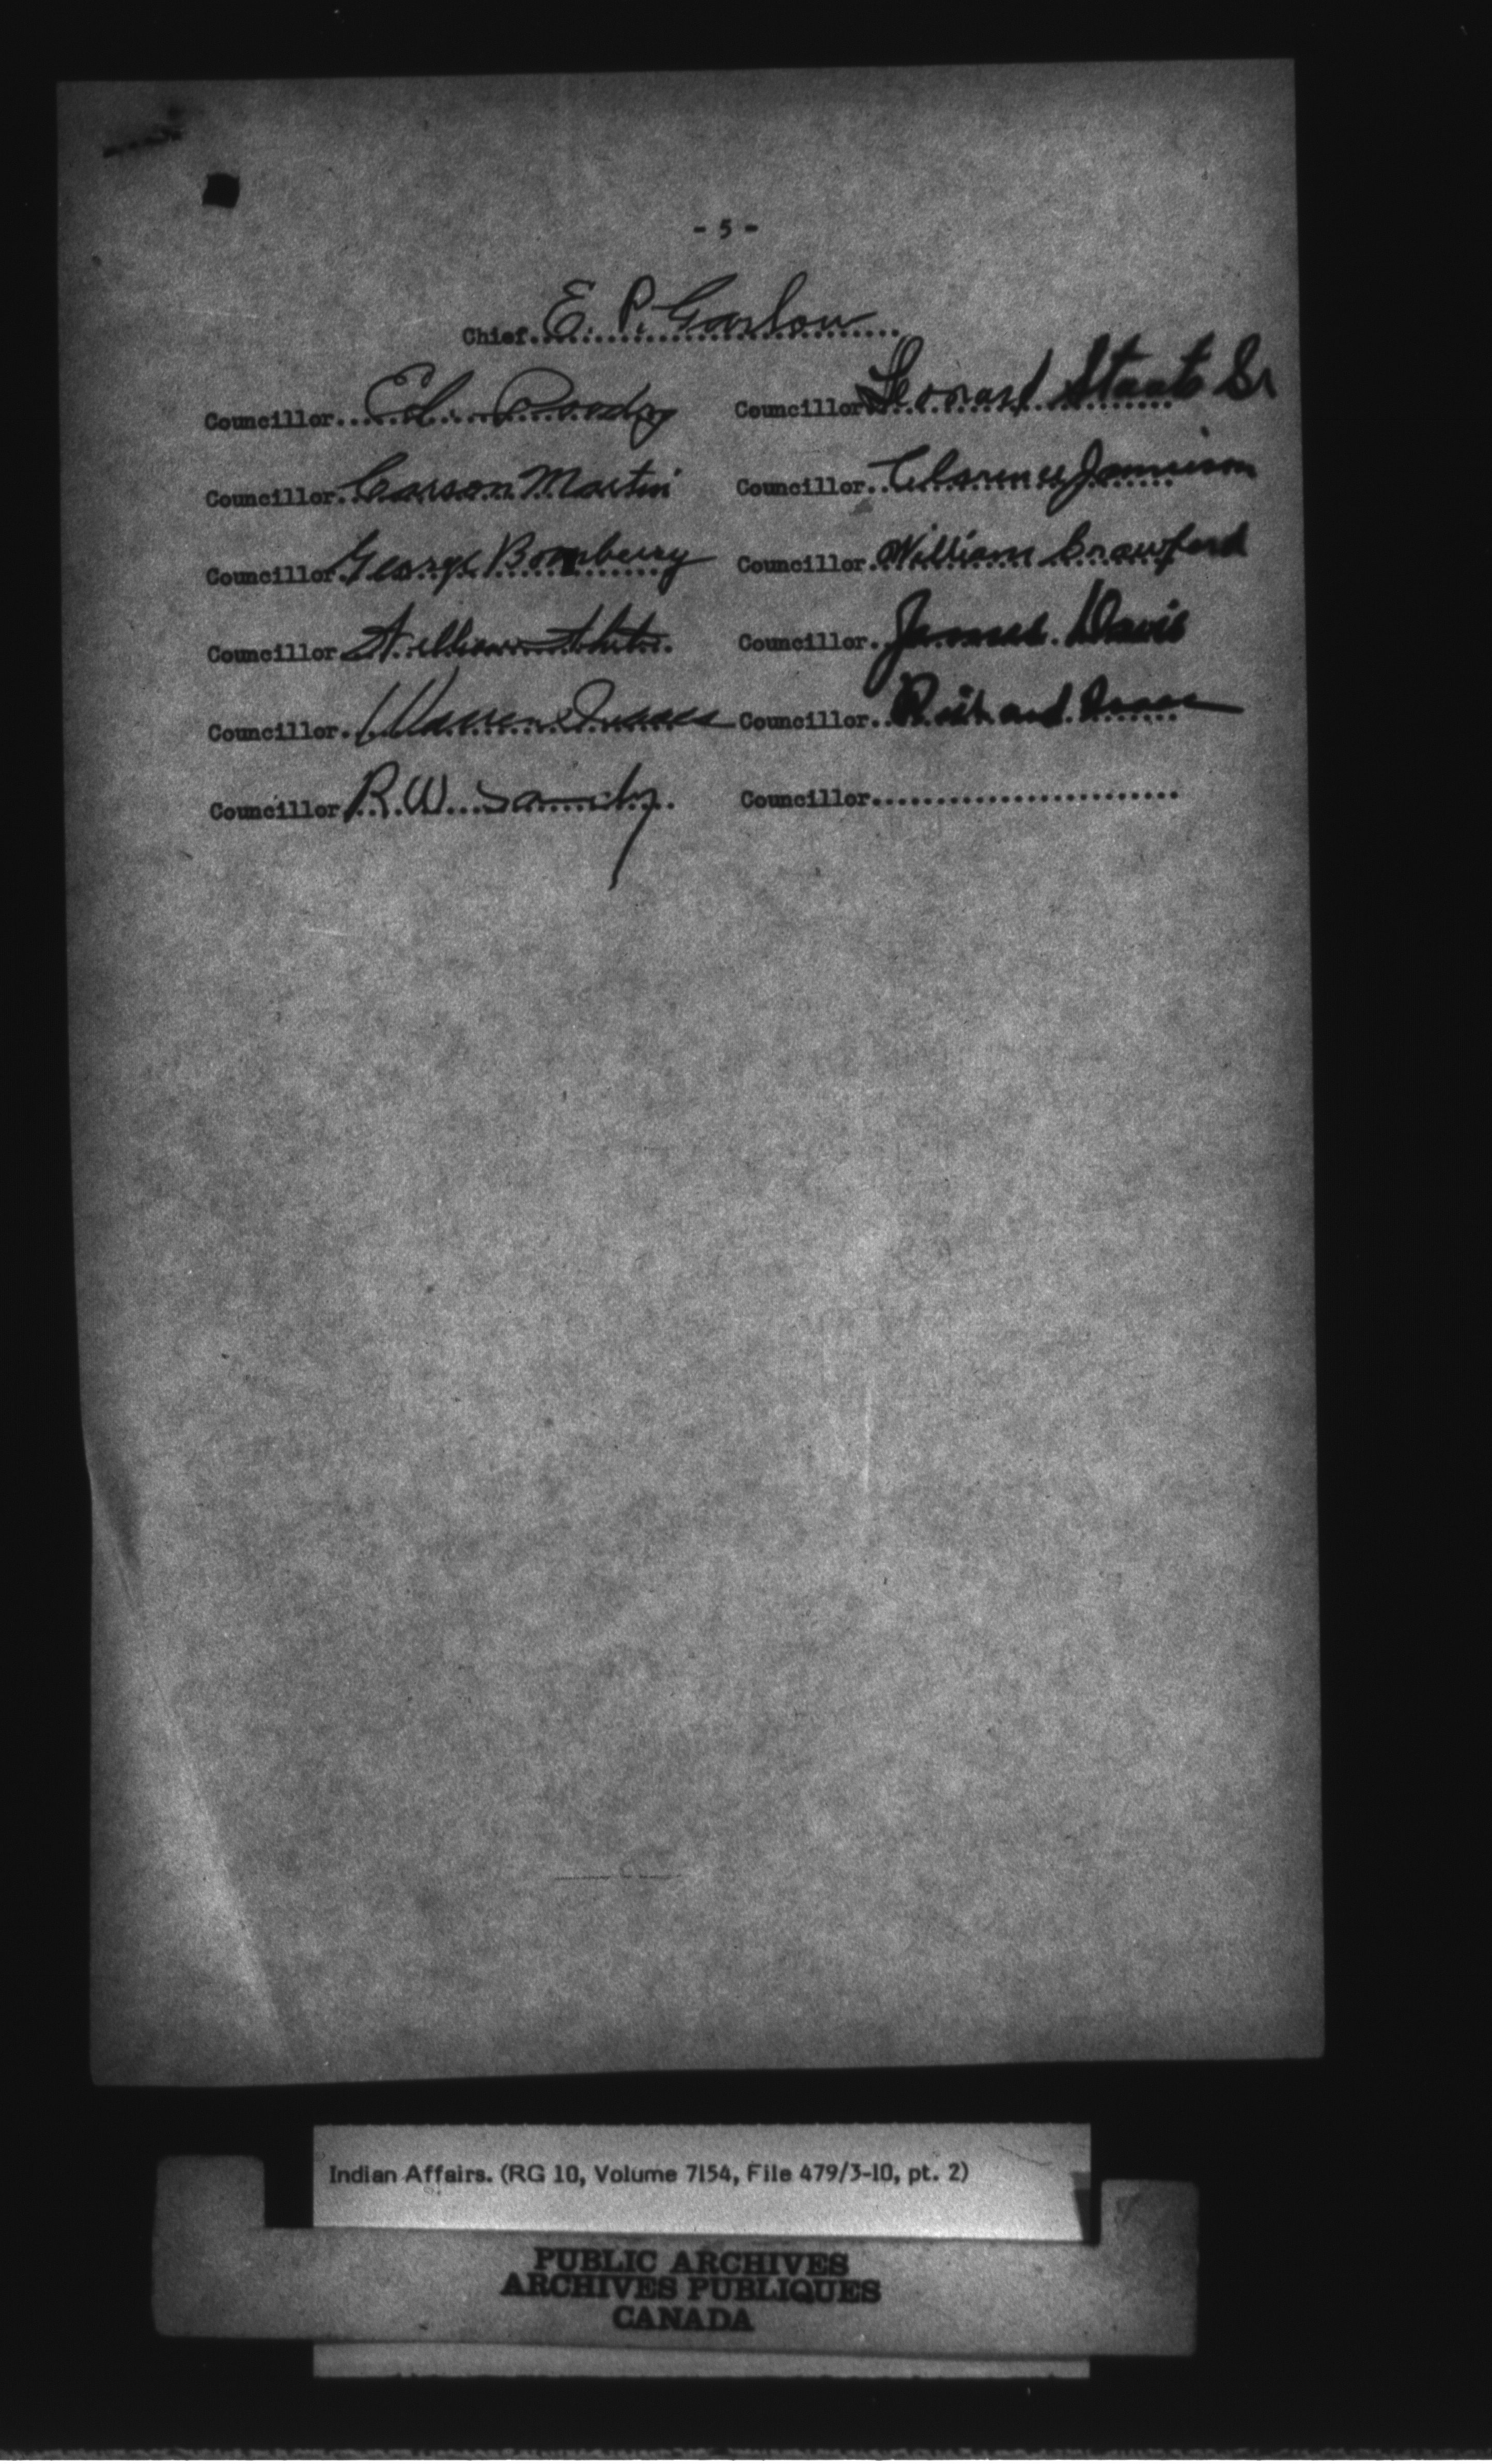 - 5 -
Chief. E. P. Garlow
Councillor. Ed. Councillor Leonard Staats Sr
Councillor. Carson Martin Councillor. Clarence Jamieson
Councillor. George Bomberry Councillor. William Crawford
Councillor William White Councillor. James Davis
Councillor. Warren Isaacs Councillor. Richard Isaac
Councillor R. W. Sandy Councillor........................
Indian Affairs. (RG 10, Volume 7154, File 479/3-10, pt. 2)
PUBLIC ARCHIVES
ARCHIVES PUBLIQUES
CANADA